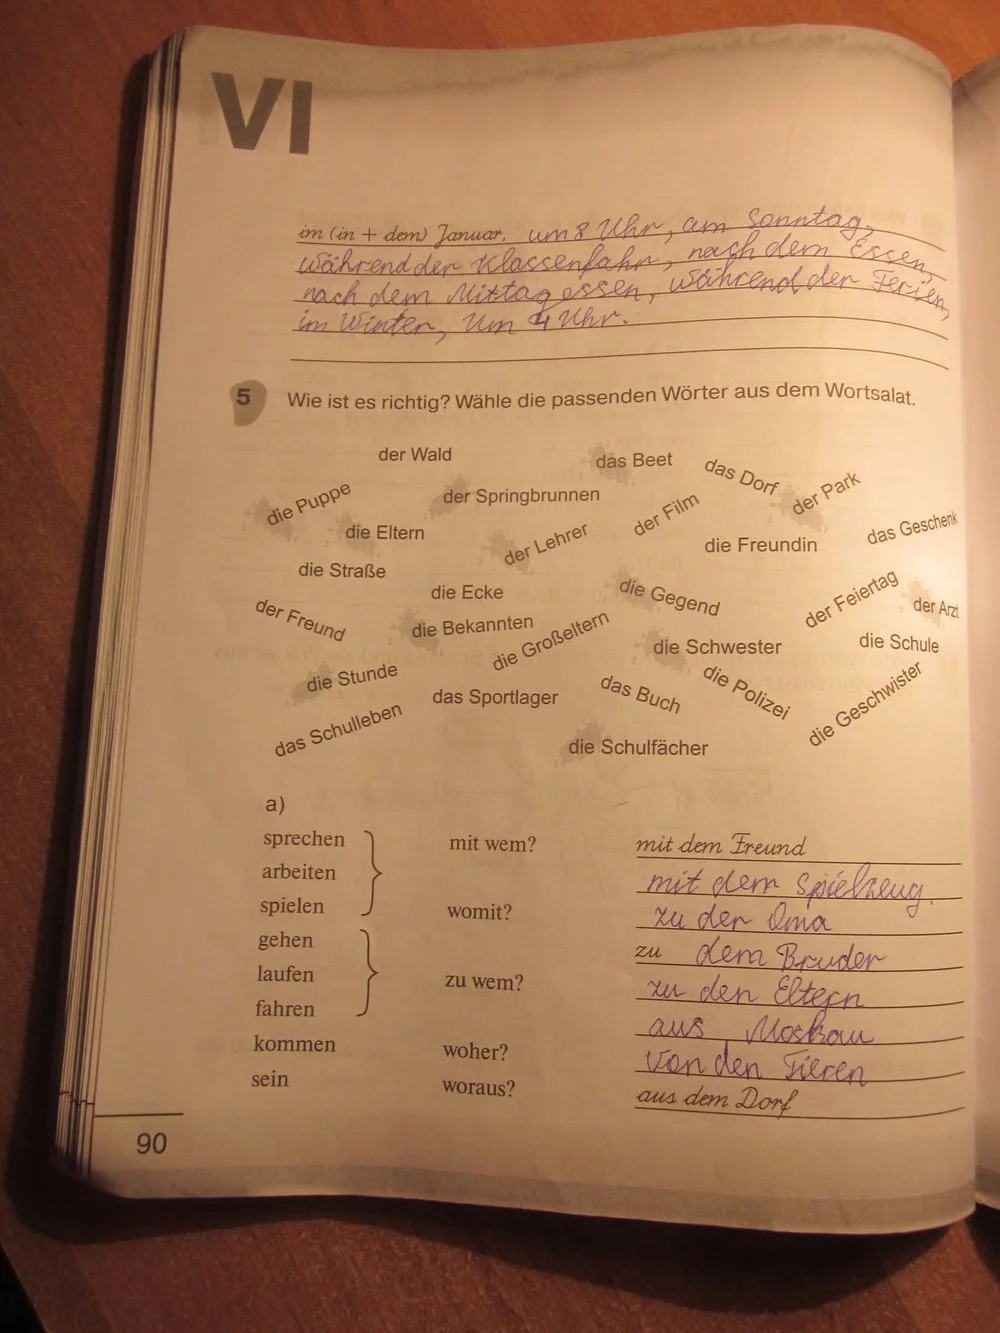 VI
im (in + dem) Januar, um 8 Uhr, am Sonntag,
während der Klassenfahr, nach dem Essen,
nach dem Mittagessen, während der Ferien,
im Winter, Um 4 Uhr.
5 Wie ist es richtig? Wähle die passenden Wörter aus dem Wortsalat.
der Wald
das Beet
das Dorf
der Park
die Puppe
der Springbrunnen
der Film
das Geschenk
die Eltern
der Lehrer
die Freundin
die Straße
die Ecke
die Gegend
der Feiertag
der Arzt
der Freund
die Bekannten
die Großeltern
die Schwester
die Schule
die Stunde
das Sportlager
das Buch
die Polizei
die Geschwister
das Schulleben
die Schulfächer
a)
sprechen mit wem? mit dem Freund
arbeiten mit dem Spielzeug.
spielen womit? zu der Oma
gehen zu dem Bruder
laufen zu wem? zu den Eltern
fahren aus Moskau
kommen woher? Von den Tieren
sein woraus? aus dem Dorf
90